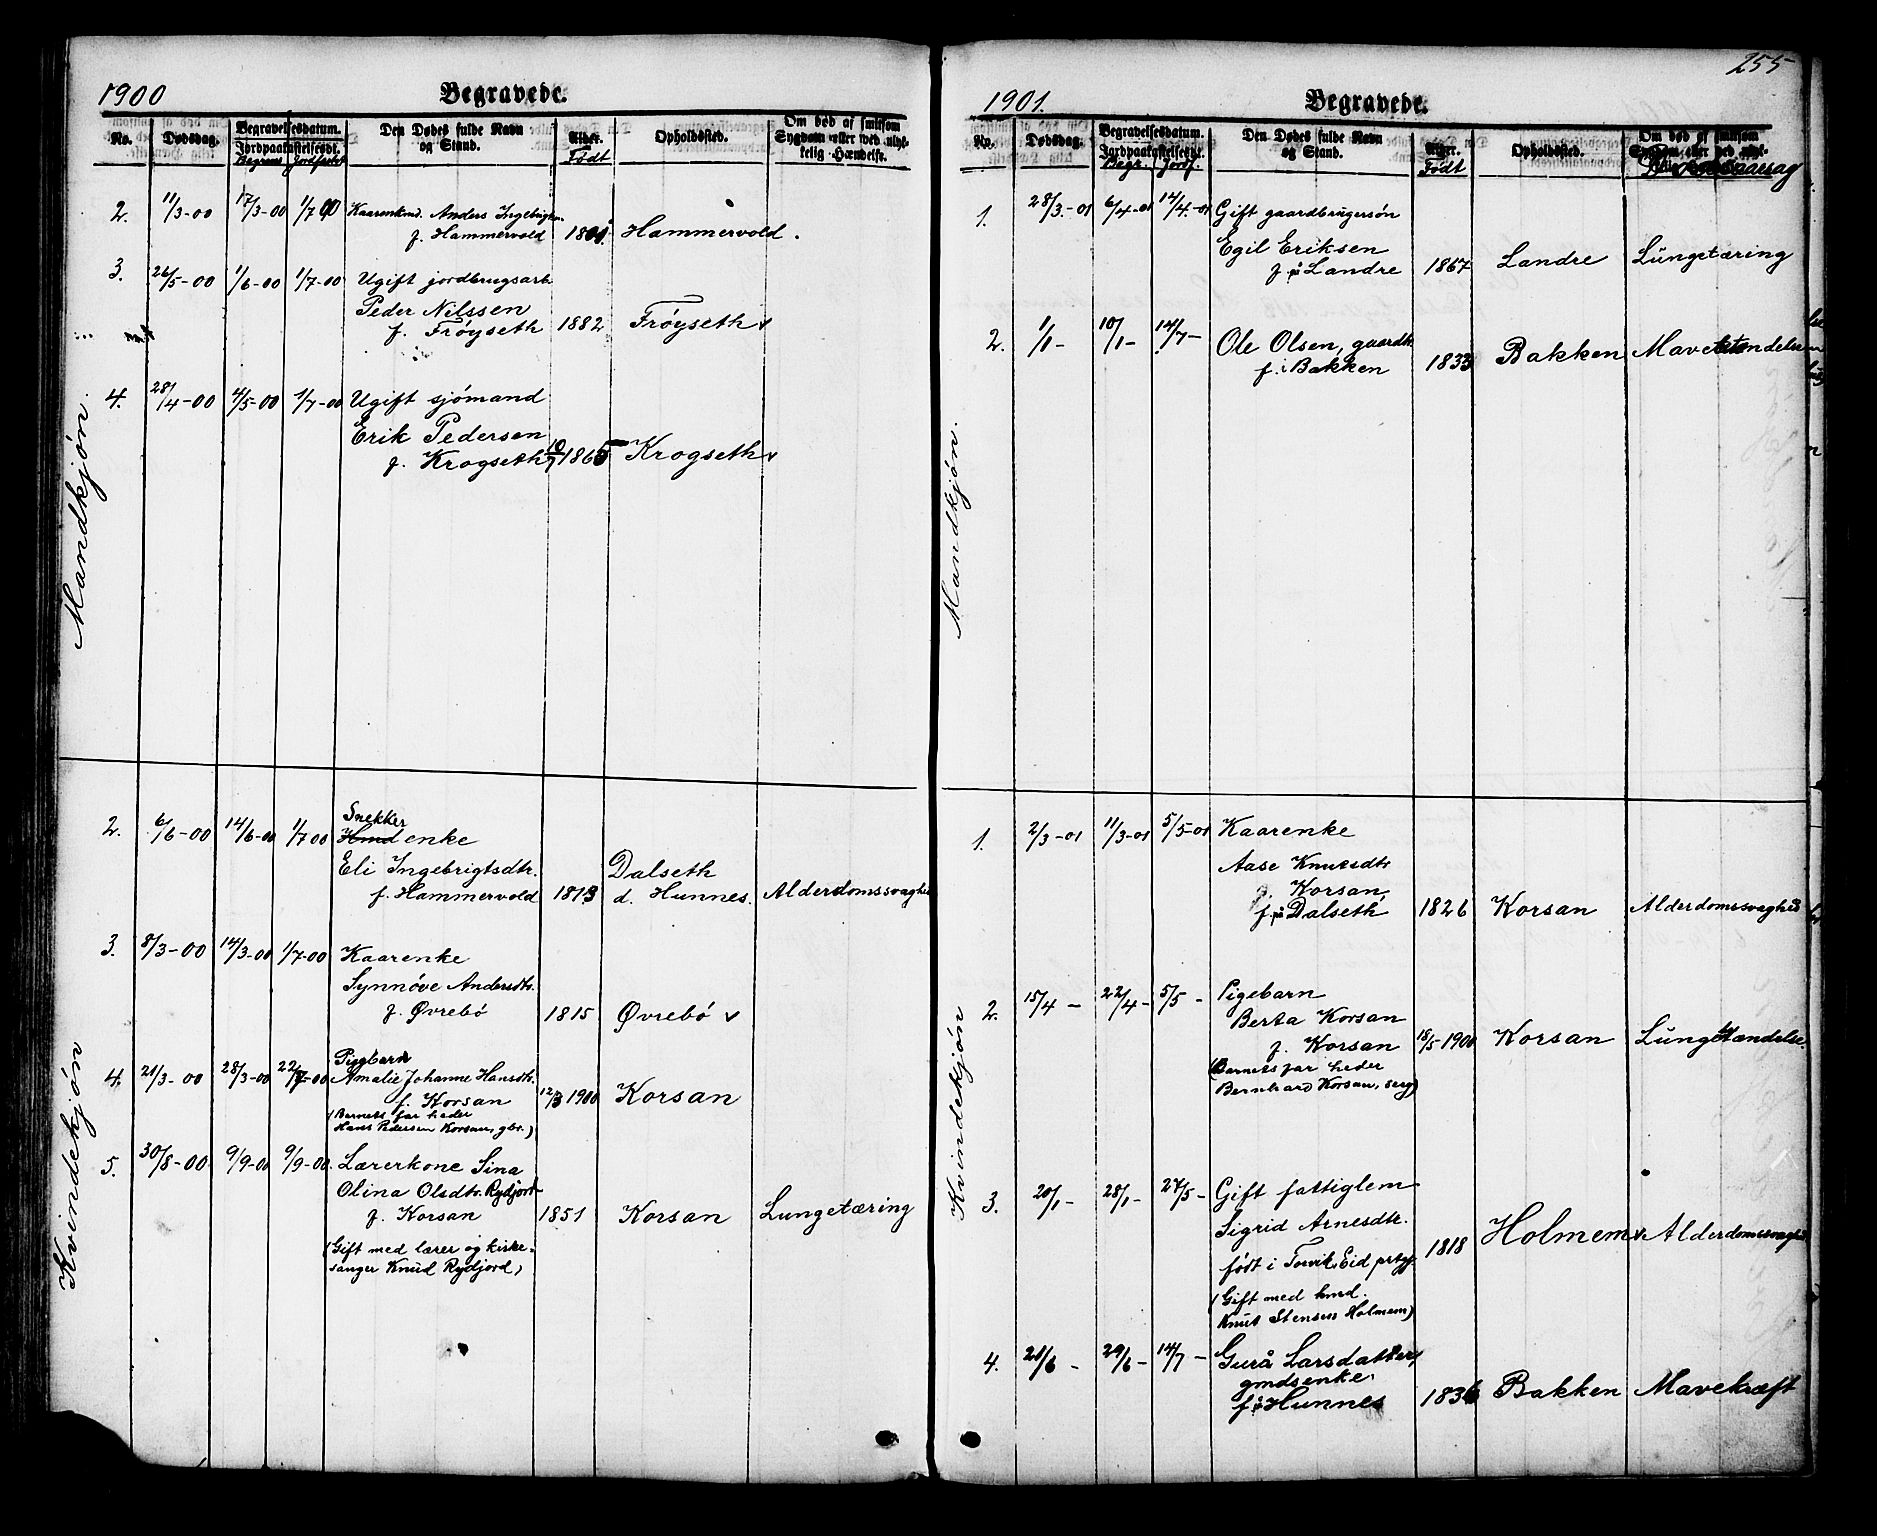 1900
Begravede.
No.
Dødsdag.
Begravelsesdatum.
Jordpaakastelsesdt.
Begrav. Jordfæstet
Den Dødes fulde Navn
og Stand.
Alder.
Født
Opholdssted.
Om død af smitsom
Sygdom eller ved ulyk-
kelig Hændelse.
Mandkjøn.
2. 11/3-00 17/3-00 1/7 00 Kaarenkmd. Anders Ingebrigtsn.
f. Hammervold Hammervold.
3. 26/5-00 1/6-00 1/7-00 Ugift jordbrugsarb.
Peder Nilssen
f. Frøyseth 1882 Frøyseth v
4. 28/4-00 4/5-00 1/7-00 Ugift sjømand
Erik Pedersen
f. Krogseth 10/7 1865 Krogseth v
Kvindekjøn
2. 6/6-00 14/6-00 1/7 00 Snekker
Kmd enke
Eli Ingebrigtsdtr. Dalseth
f. Hammervold 1813 d. Hunnes. Alderdomssvaghed
3. 8/3-00 14/3-00 1/7-00 Kaarenke
Synnøve Andersdtr.
f. Øvrebø 1815 Øvrebø v
4. 21/3-00 28/3-00 22/7-00 Pigebarn
Amalie Johanne Hansdtr.
f. Korsan 12/3 1900 Korsan
(Barnets far heder
Hans Pedersen Korsan, gbr.)
5. 30/8-00 9/9-00 9/9-00. Lærerkone Sina
Olina Olsdtr. Rydjord
f. Korsan 1851 Korsan Lungetæring
(Gift med lærer og kirke-
sanger Knud Rydjord)
255
1901.
Begravede.
No.
Dødsdag.
Begravelsesdatum.
Jordpaakastelsesdt.
Begr. Jordf.
Den Dødes fulde Navn
og Stand.
Alder.
Født
Opholdssted.
Om død af smitsom
Sygdom eller ved ulyk-
Dødsaarsag
Mandkjøn.
1. 28/3-01 6/4-01 14/4-01 Gift gaardbrugersøn
Egil Eriksen
f. på Landre 1867 Landre Lungetæring
2. 1/1- 10/1- 14/7- Ole Olsen, gaardbr.
f. i Bakken 1833 Bakken Mavebetændelse
Kvindekjøn
1. 2/3-01 11/3-01 5/5-01 Kaarenke
Aase Knutsdtr.
Korsan,
f. på Dalseth 1826 Korsan Alderdomssvaghed
2. 15/4- 22/4- 5/5- Pigebarn
Berta Korsan
f. Korsan 18/5 1900 Korsan Lungebetændelse.
(Barnets far heder
Bernhard Korsan, serg)
3. 20/1- 28/1- 27/5- Gift fattiglem
Sigrid Arnesdtr.
født i Torvik, Eid prstgj. 1818 Holmem v Alderdomssvaghed
(Gift med kmd.
Knut Stensen Holmem)
4. 21/6- 29/6- 14/7- Gurå Larsdatter,
gmdsenke.
f. på Hunnes 1836 Bakken Mavekræft